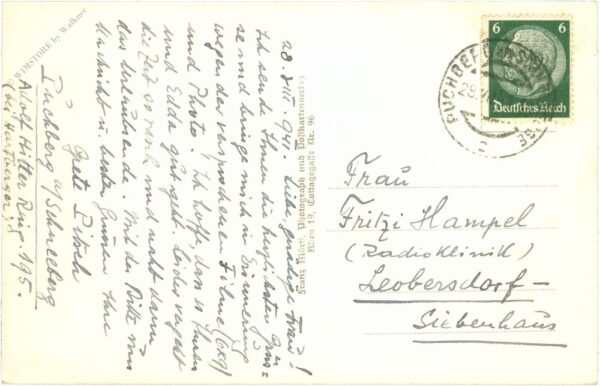 28. VIII. 941. Liebe gnädige Frau!
Ich sende Ihnen die herzlichsten Grüs=
se und bringe mich in Erinnerung
wegen der versprochenen Filme (6x9)
und Photo. Ich hoffe, dass es Ihnen
und Edda gut geht. Leider vergeht
die Zeit so rasch und naht dann
das Urlaubsende. Mit der Bitte um
Nachricht u. besten Grüssen Ihre
Grete
Puchberg a/Schneeberg
Adolf Hitler Ring 195.
(bei
Franz Mörtl, Photograph und Postkartenverlag
Wien 19, Cottagegasse Nr. 96
© WIMSTORE by Walkner
6 6
Deutsches Reich
PUCHBERG
Frau
Fritzi Hampel
(Radioklinik)
Leobersdorf –
Siebenhaus